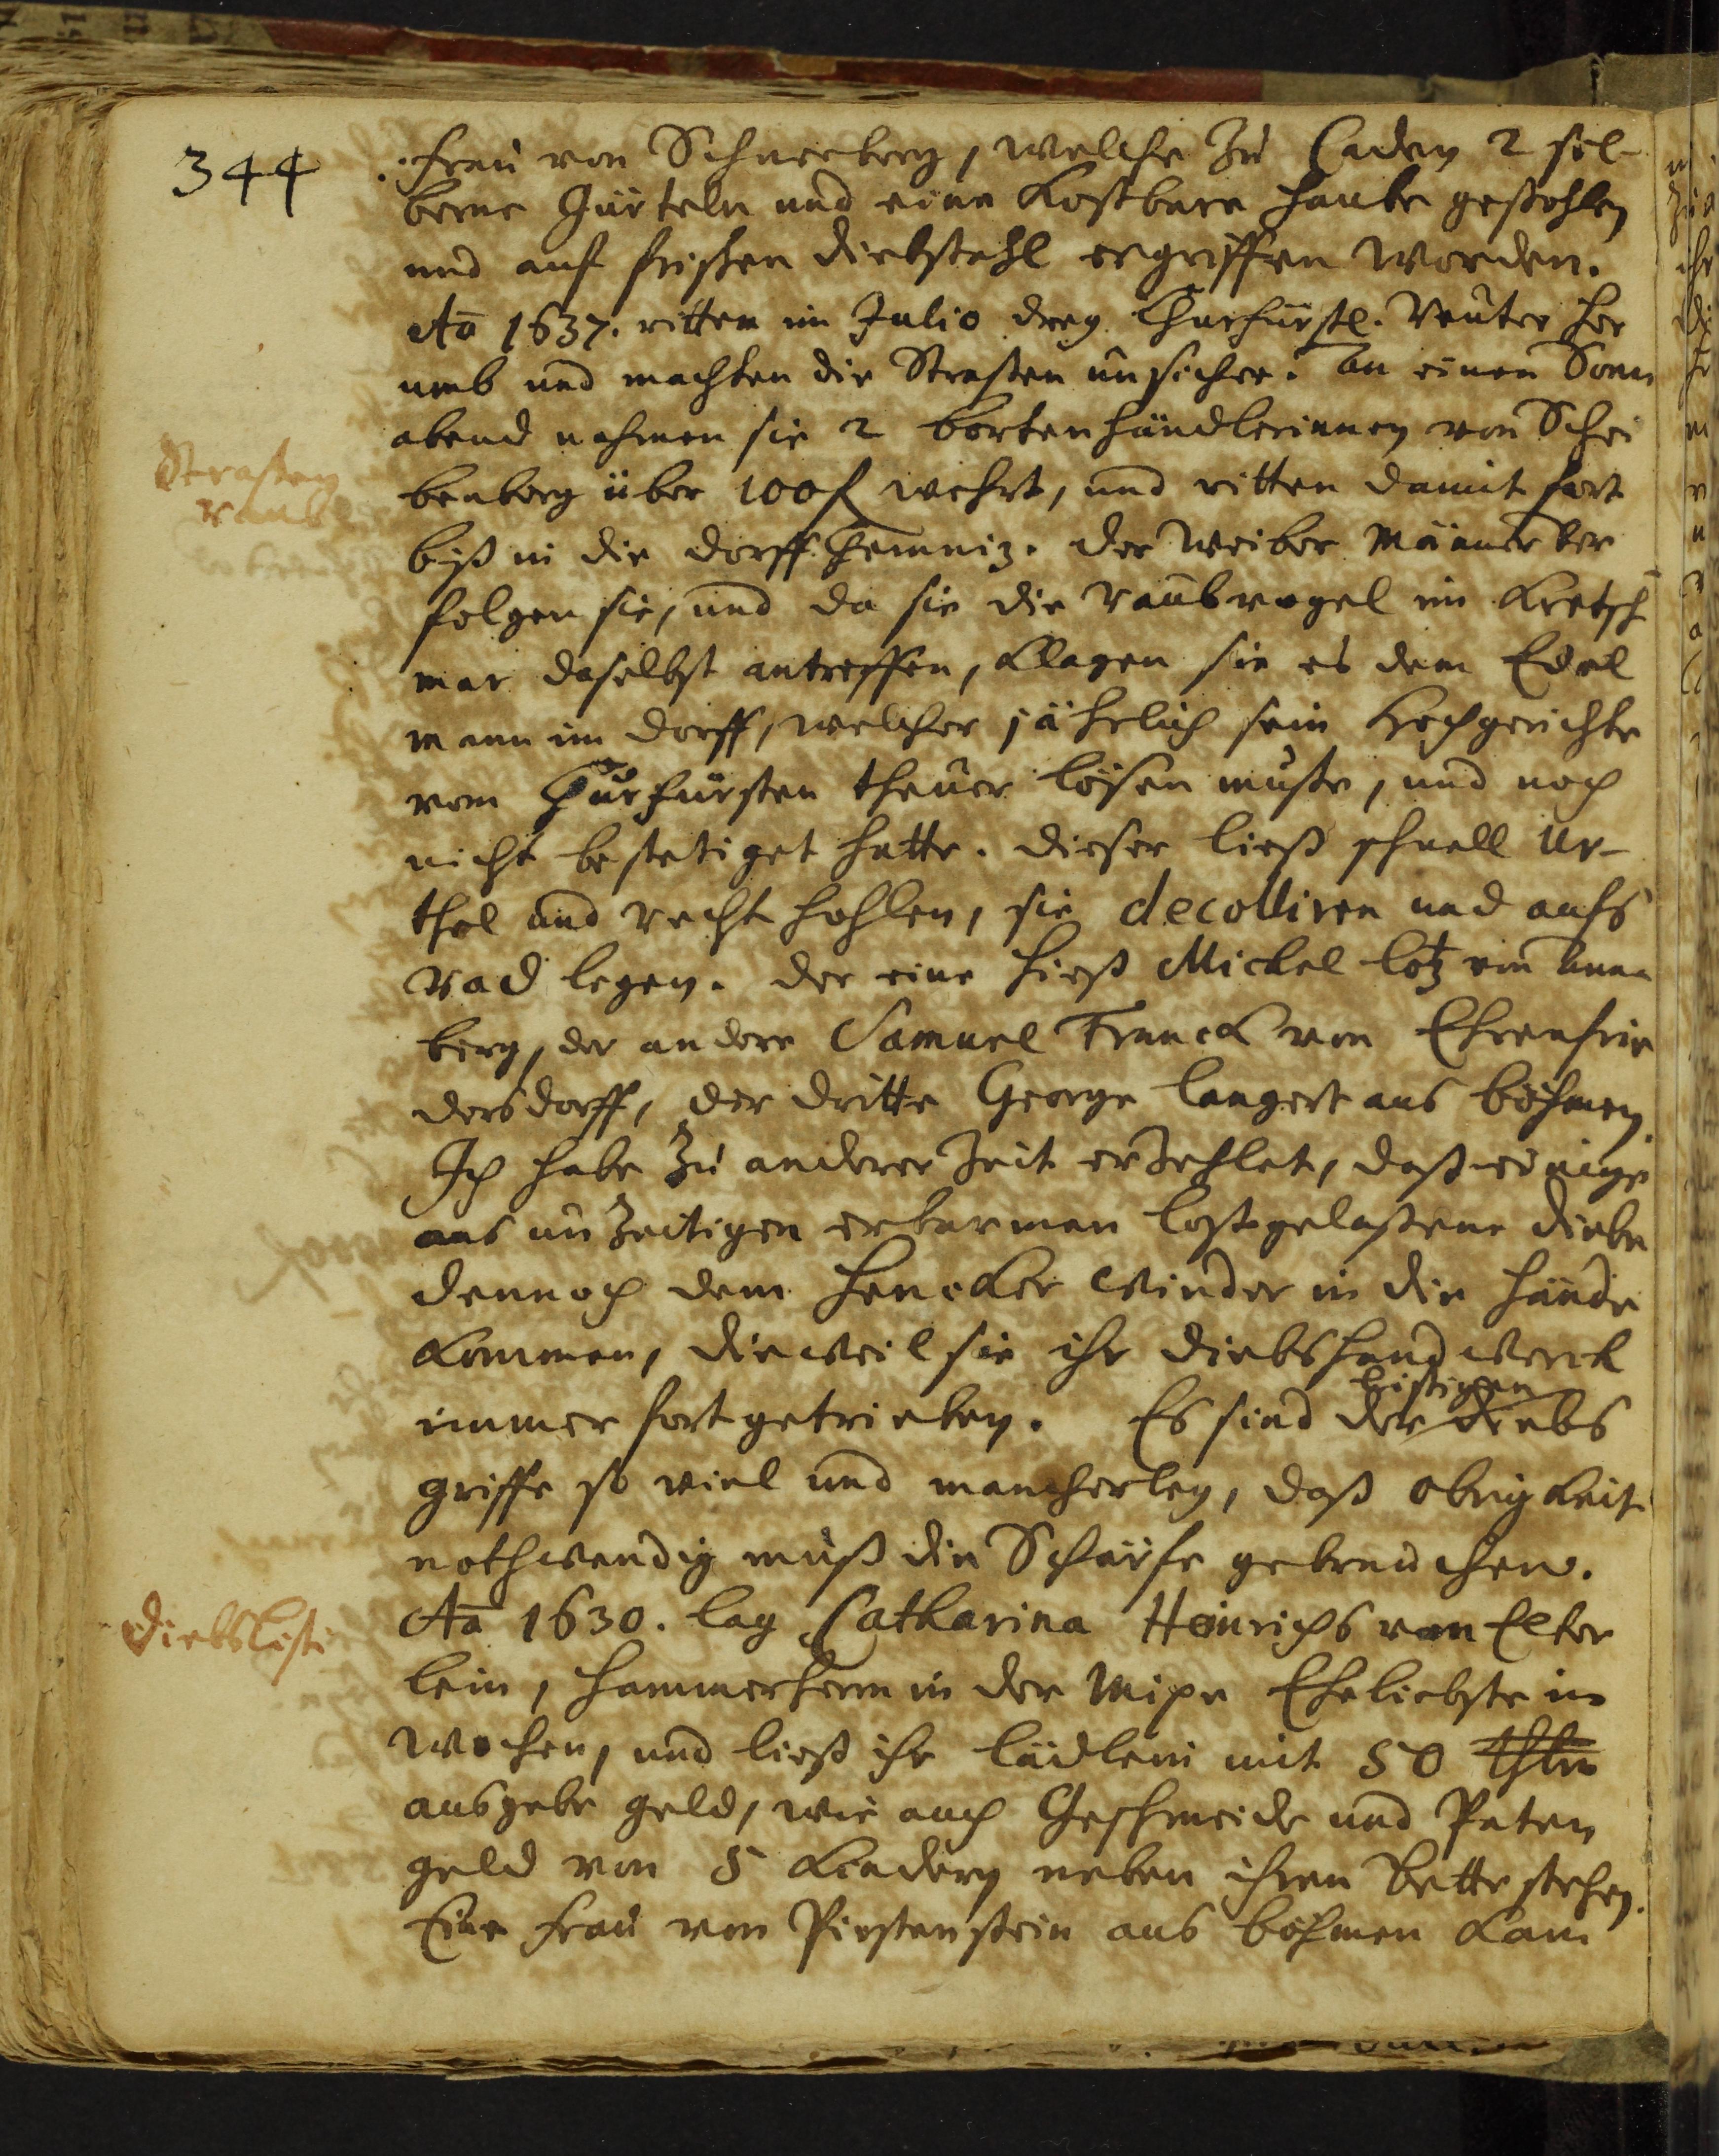 344
frau von Schneeberg, welche zu Caden 2 sil-
berne Gürteln und eine kostbare haube gestohlen
und auf frischen diebstahl ergriffen worden.
Aō 1637. ritten im Julio drey Churfürstl. Reuter her
umb und machten die Straßen unsicher. an einen Sonn
abend nahmen sie 2 bortenhändlerinnen von Schei
Straßen
raub
benberg über 100 f wehrt, und ritten damit fort
biß in die dorff Chemniz. der weiber Männer ver
folgen sie, und da sie die raubvogel im Kretzsch
mar daselbst antreffen, klagen sie es dem Edel
mann im dorff, welcher jährlich sein hochgerichte
vom Churfürsten theuer lösen muste, und noch
nicht bestetiget hatte. dieser ließ schnell Ur-
thel und recht hohlen, sie decolliren und aufs
rad legen. der eine hieß Michel Lotz von Anna
berg, der andere Samuel Franck von Ehrenfrie
dersdorff, der dritte George Langert aus böhmen.
Ich habe zu anderer Zeit erzehlet, daß einige
aus unzeitigen erbarmen loßgelaßene diebe
dennoch dem hencker wieder in die hände
kommen, dieweil sie ihr diebshandwerck
listigen
immer fort getrieben. Es sind der diebs
griffe so viel und mancherley, daß obrigkeit
nothwendig muß die Schärfe gebrauchen.
Diebslist
Aō 1630. lag Catharina Heinrichs von Elter
lein, hammerherrn in der Mipe Eheliebste in
wochen, und ließ ihr lädlein mit 50 thlr
ausgebe geld, wie auch Geschmeide und Paten
geld von 5 kindern neben ihren bette stehen.
Eine frau von Pirstenstein aus böhmen kam